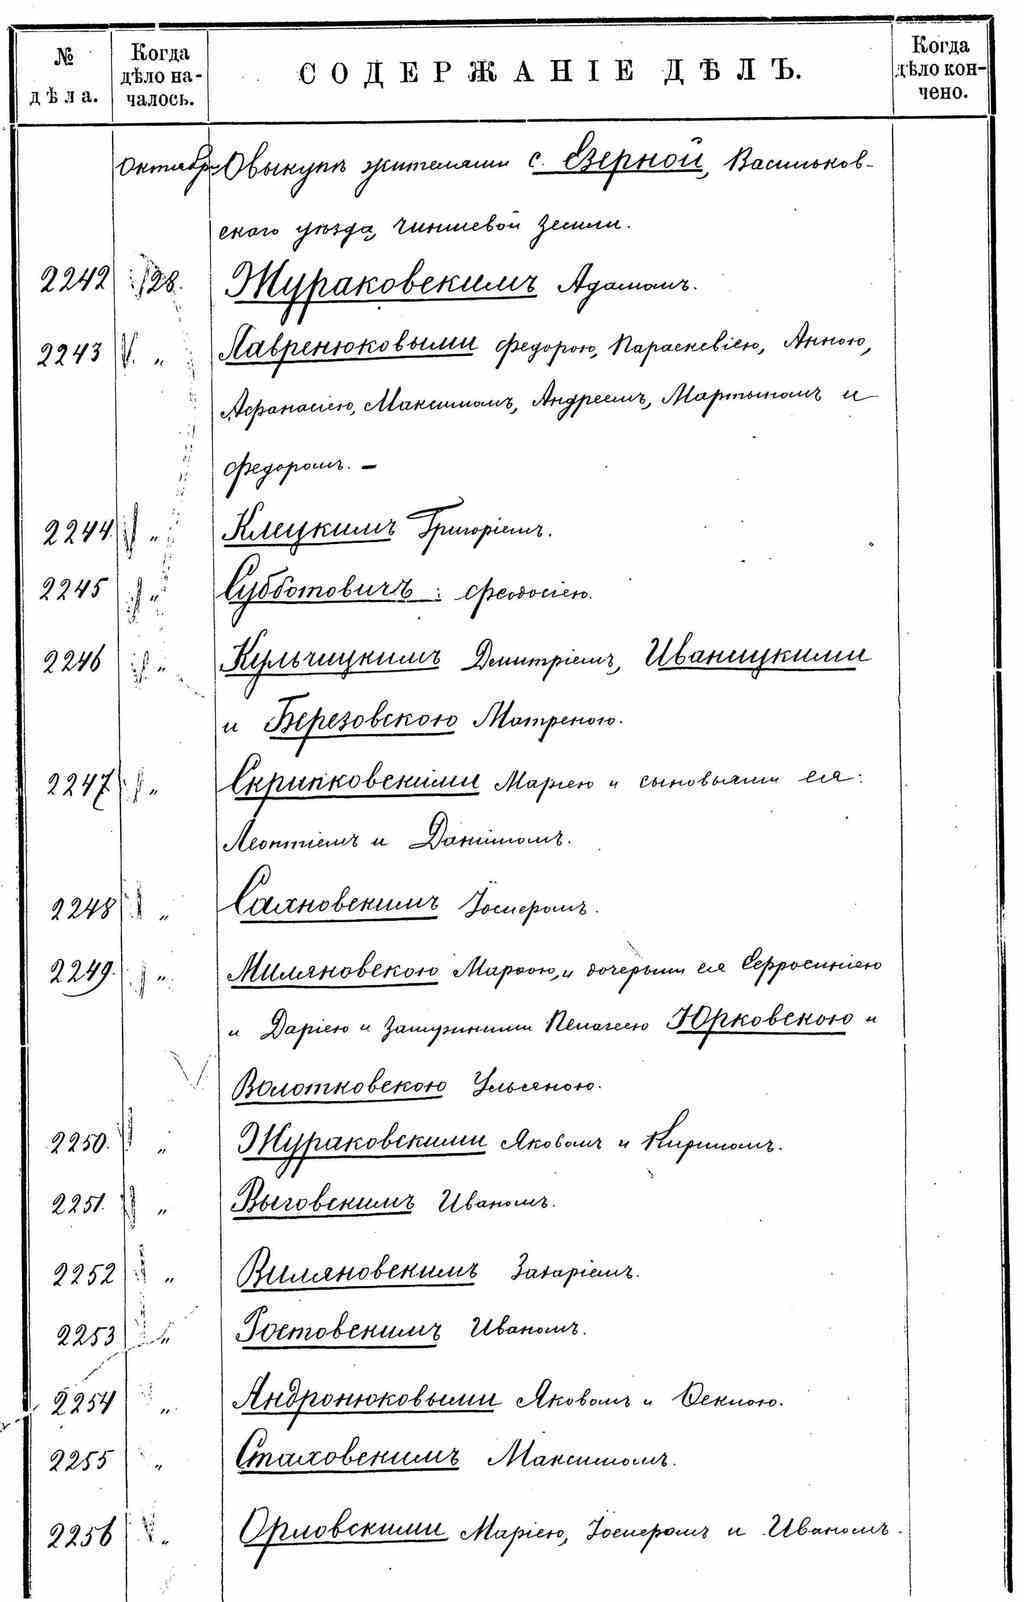 № дѣла. Когда дѣло началось. СОДЕРЖАНІЕ ДѢЛЪ. Когда дѣло кончено.
Октябрь О выкупѣ жителями с. Езерной, Васильков-
скаго уѣзда, чиншевой земли.
2242 28. Жураковскимъ Адамомъ.
2243 „ Лавренюковыми Федорою, Параскевіею, Анною,
Афанасіею, Максимомъ, Андреемъ, Мартыномъ и
Федоромъ. —
2244. „ Клецкимъ Григоріемъ.
2245 „ Субботовичъ: Феодосіею.
2246 „ Кульчицкимъ Дмитріемъ, Иваницкими
и Березовскою Матреною.
2247 „ Скрипковскими Маріею и сыновьями ея:
Леонтіемъ и Даніиломъ.
2248 „ Сахновскимъ Іосифомъ.
2249. „ Миляновскою Марфою, и дочерьми ея Ефросиніею
и Даріею и замужними Пелагеею Юрковскою и
Волотковскою Ульяною.
2250. „ Жураковскими Яковомъ и Кириломъ.
2251. „ Выговскимъ Иваномъ.
2252 „ Виляновскимъ Захаріемъ.
2253 „ Ростовскимъ Иваномъ.
2254 „ Андронюковыми Яковомъ и Феклою.
2255 „ Стаховскимъ Максимомъ.
2256 „ Орловскими Маріею, Іосифомъ и Иваномъ.